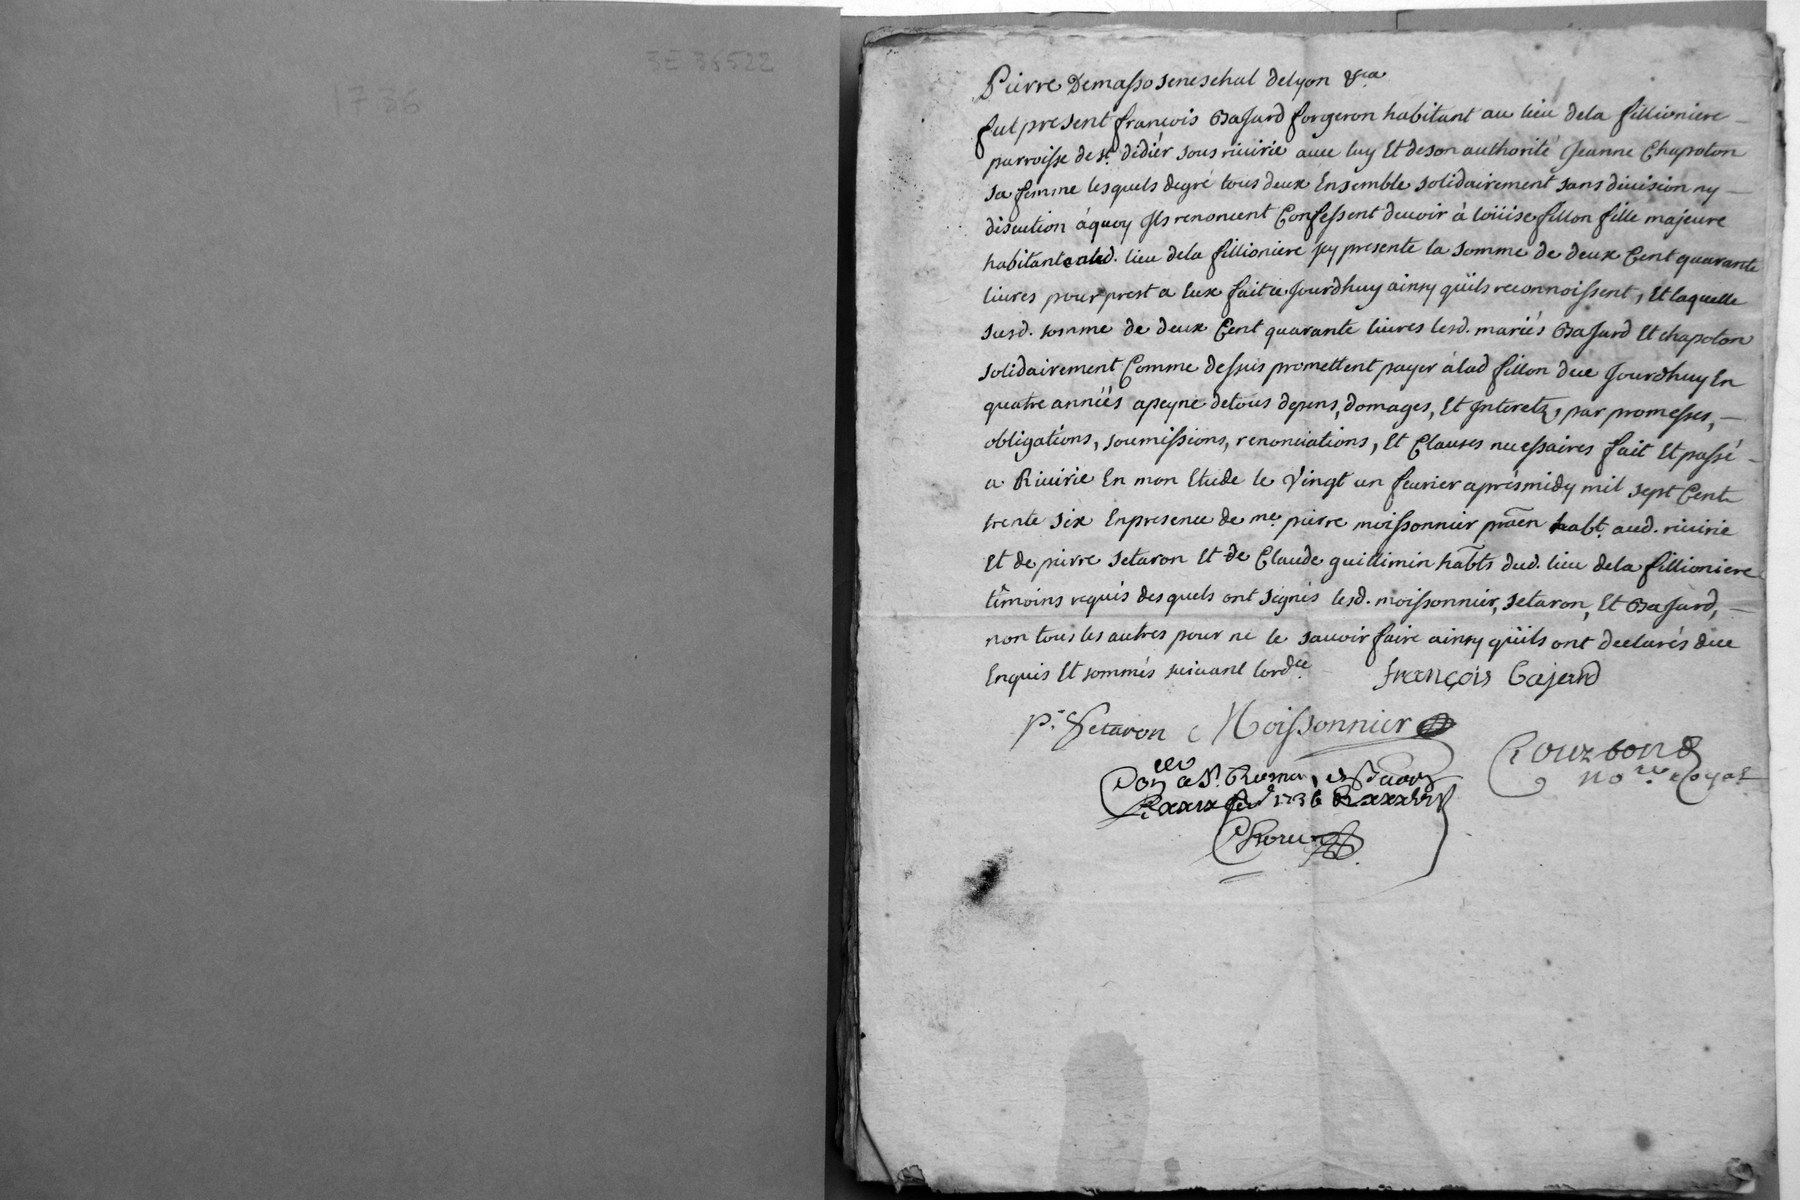 5E 36522
1736
Pierre Demasso seneschal delyon &ca
fut present françois Bajard forgeron habitant au lieu dela fillioniere
parroisse de st. didier sous riuirie auec luy Et deson authorité Jeanne Chapoton
sa femme lesquels degré tous deux Ensemble solidairement sans diuision ny
discution àquoy Jls renoncent Confessent deuoir à loüise fillon fille majeure
habitante aud. lieu dela fillioniere Jcy presente la somme de deux Cent quarante
liures pour prest a Eux fait ce Jourdhuy ainsy qüils reconnoissent, Et laquelle
susd. somme de deux Cent quarante liures lesd. mariés Bajard Et chapoton
solidairement Comme dessus promettent payer àlad fillon dece Jourdhuy En
quatre années apeyne detous depens, domages, Et Jnteretz, par promesses,
obligations, soumissions, renonciations, Et Clauses necessaires fait Et passé
a Riuirie En mon Etude le Vingt un feurier aprésmidy mil sept Cent
trente six Enpresence de me. pierre moissonnier praēn habt. aud. riuirie
Et de pierre setaron Et de Claude guillimin habts dud. lieu dela fillioniere
témoins requis desquels ont signés lesd. moissonnier, setaron, Et Bajard,
non tous les autres pour ne le sauoir faire ainsy qüils ont declarés dece
Enquis Et sommés suiuant lordce.
françois bajard
pre Setaron Moissonnier
Couzbon
nore. Royal
feur 1736